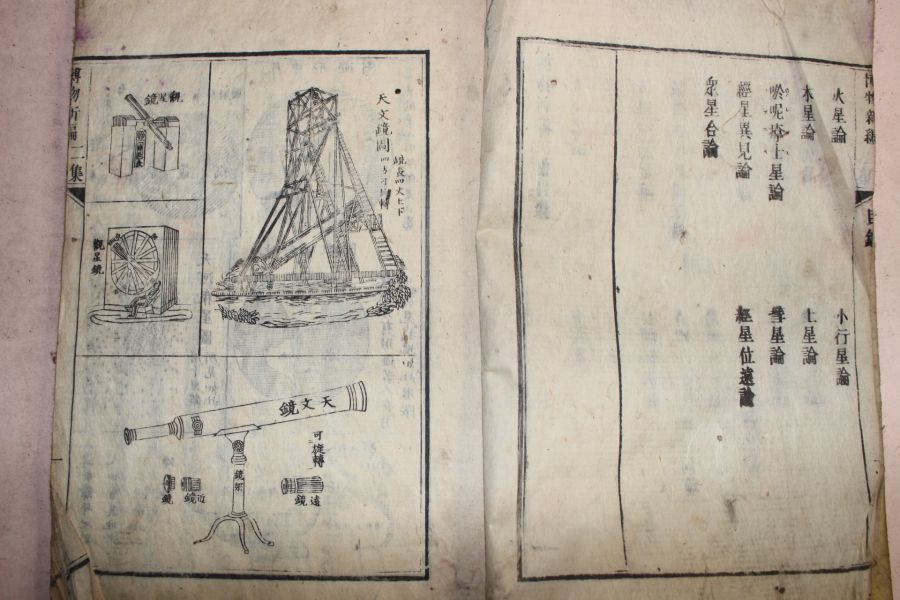 火星論
小行星論
木星論
土星論
呢㖠士星論
彗星論
經星異見論
經星位遠論
眾星合論
目錄
天文鏡閣
四方可轉
鏡長四丈上下
觀星鏡
觀星鏡
天文鏡
可旋轉
鏡架
遠鏡
近鏡
鏡
博物新編二集